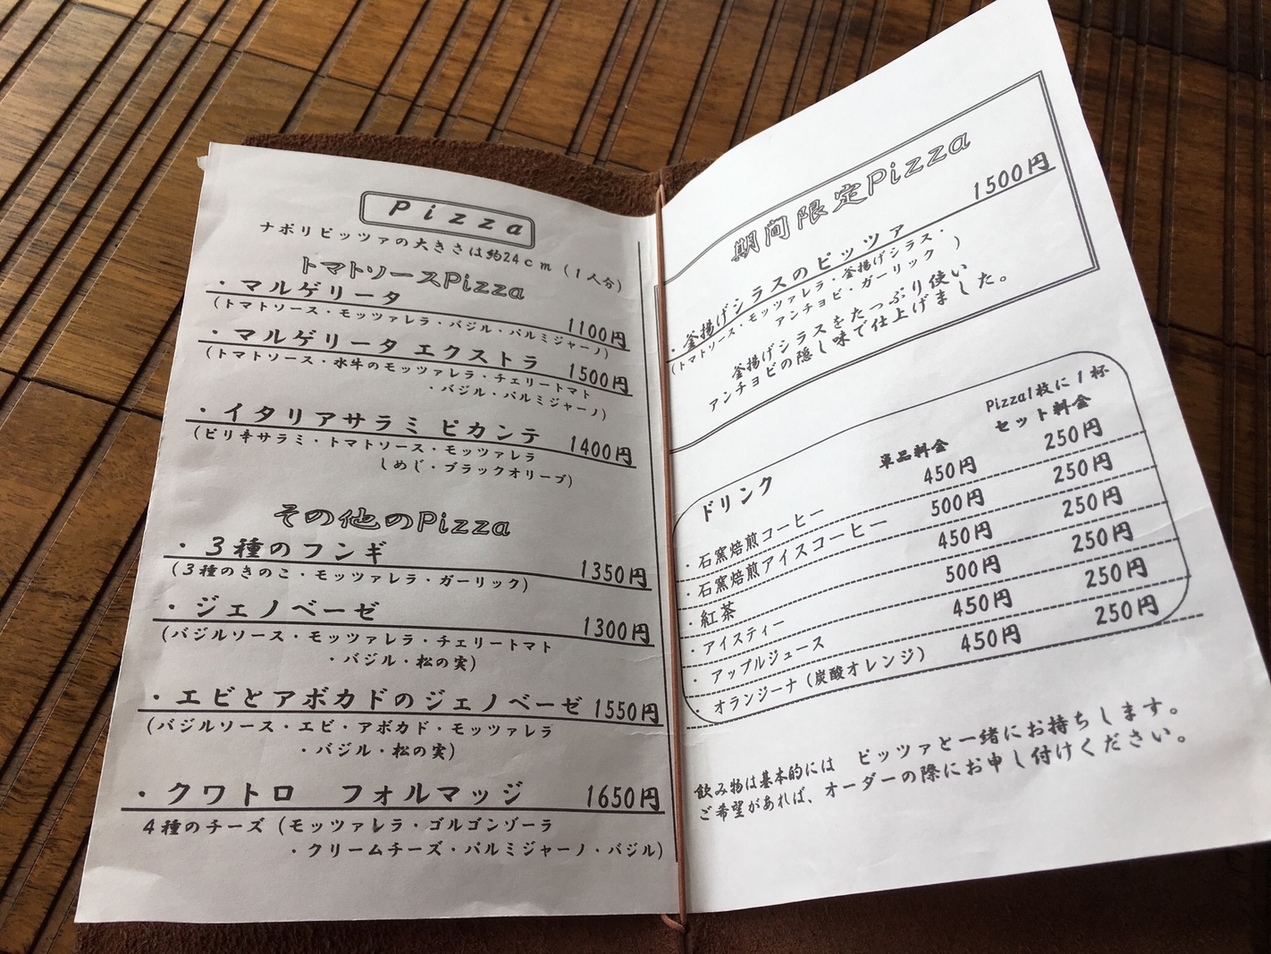 Pizza
ナポリピッツァの大きさは約24cm（1人分）
トマトソースPizza
・マルゲリータ 1100円
（トマトソース・モッツァレラ・バジル・パルミジャーノ）
・マルゲリータ エクストラ 1500円
（トマトソース・水牛のモッツァレラ・チェリートマト
・バジル・パルミジャーノ）
・イタリアサラミ ピカンテ 1400円
（ピリ辛サラミ・トマトソース・モッツァレラ
しめじ・ブラックオリーブ）
その他のPizza
・3種のフンギ 1350円
（3種のきのこ・モッツァレラ・ガーリック）
・ジェノベーゼ 1300円
（バジルソース・モッツァレラ・チェリートマト
・バジル・松の実）
・エビとアボカドのジェノベーゼ 1550円
（バジルソース・エビ・アボカド・モッツァレラ
・バジル・松の実）
・クワトロ　フォルマッジ 1650円
4種のチーズ（モッツァレラ・ゴルゴンゾーラ
・クリームチーズ・パルミジャーノ・バジル）
期間限定Pizza
・釜揚げシラスのピッツァ 1500円
（トマトソース・モッツァレラ・釜揚げシラス・
アンチョビ・ガーリック　）
釜揚げシラスをたっぷり使い
アンチョビの隠し味で仕上げました。
Pizza1枚に1杯
ドリンク 単品料金 セット料金
・石窯焙煎コーヒー 450円 250円
・石窯焙煎アイスコーヒー 500円 250円
・紅茶 450円 250円
・アイスティー 500円 250円
・アップルジュース 450円 250円
・オランジーナ（炭酸オレンジ） 450円 250円
飲み物は基本的には　ピッツァと一緒にお持ちします。
ご希望があれば、オーダーの際にお申し付けください。